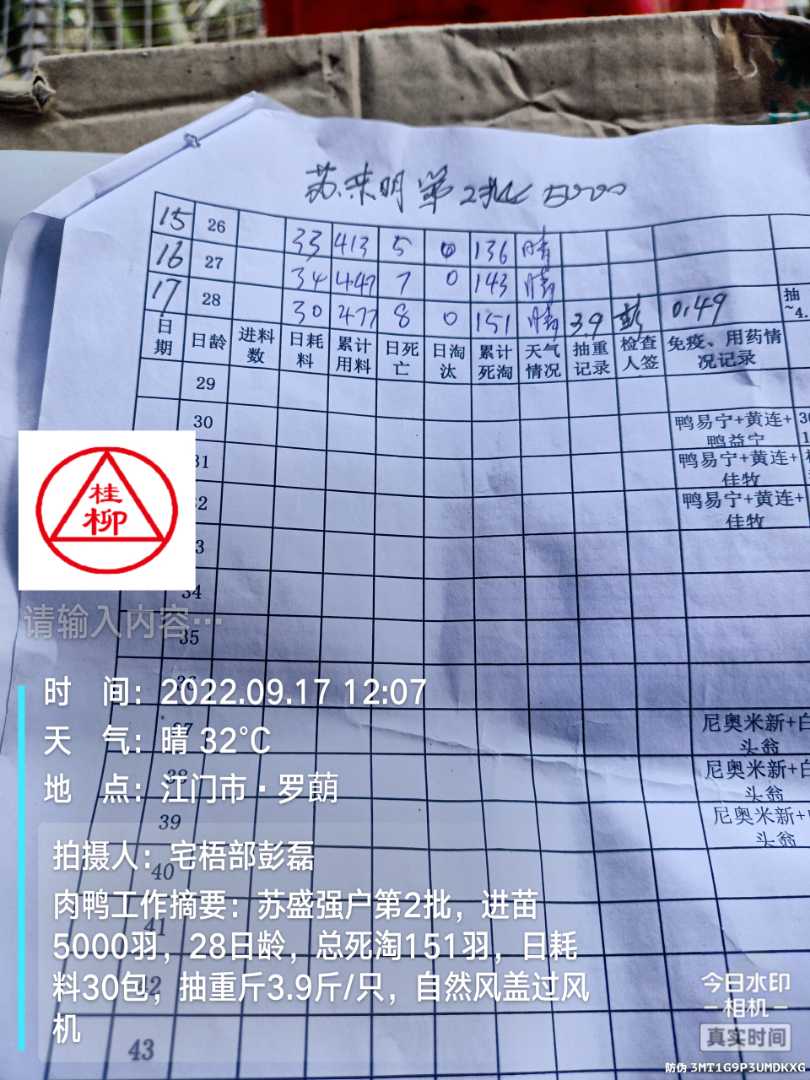 苏荣明第2批 5000
15 26 33 413 5 0 136 晴
16 27 34 447 7 0 143 晴
17 28 30 477 8 0 151 晴 3.9 彭 0.49 抽
日期 日龄 进料数 日耗料 累计用料 日死亡 日淘汰 累计死淘 天气情况 抽重记录 检查人签 免疫、用药情况记录
29
30 鸭易宁+黄连+鸭益宁
31 鸭易宁+黄连+佳牧
32 鸭易宁+黄连+佳牧
34
35
36
37 尼奥米新+白头翁
38 尼奥米新+白头翁
39 尼奥米新+
头翁
40
41
42
43
桂柳
请输入内容…
时 间：2022.09.17 12:07
天 气：晴 32℃
地 点：江门市·罗萌
拍摄人：宅梧部彭磊
肉鸭工作摘要：苏盛强户第2批，进苗
5000羽，28日龄，总死淘151羽，日耗
料30包，抽重斤3.9斤/只，自然风盖过风
机
今日水印
相机
真实时间
防伪 3MT1G9P3UMDKXG